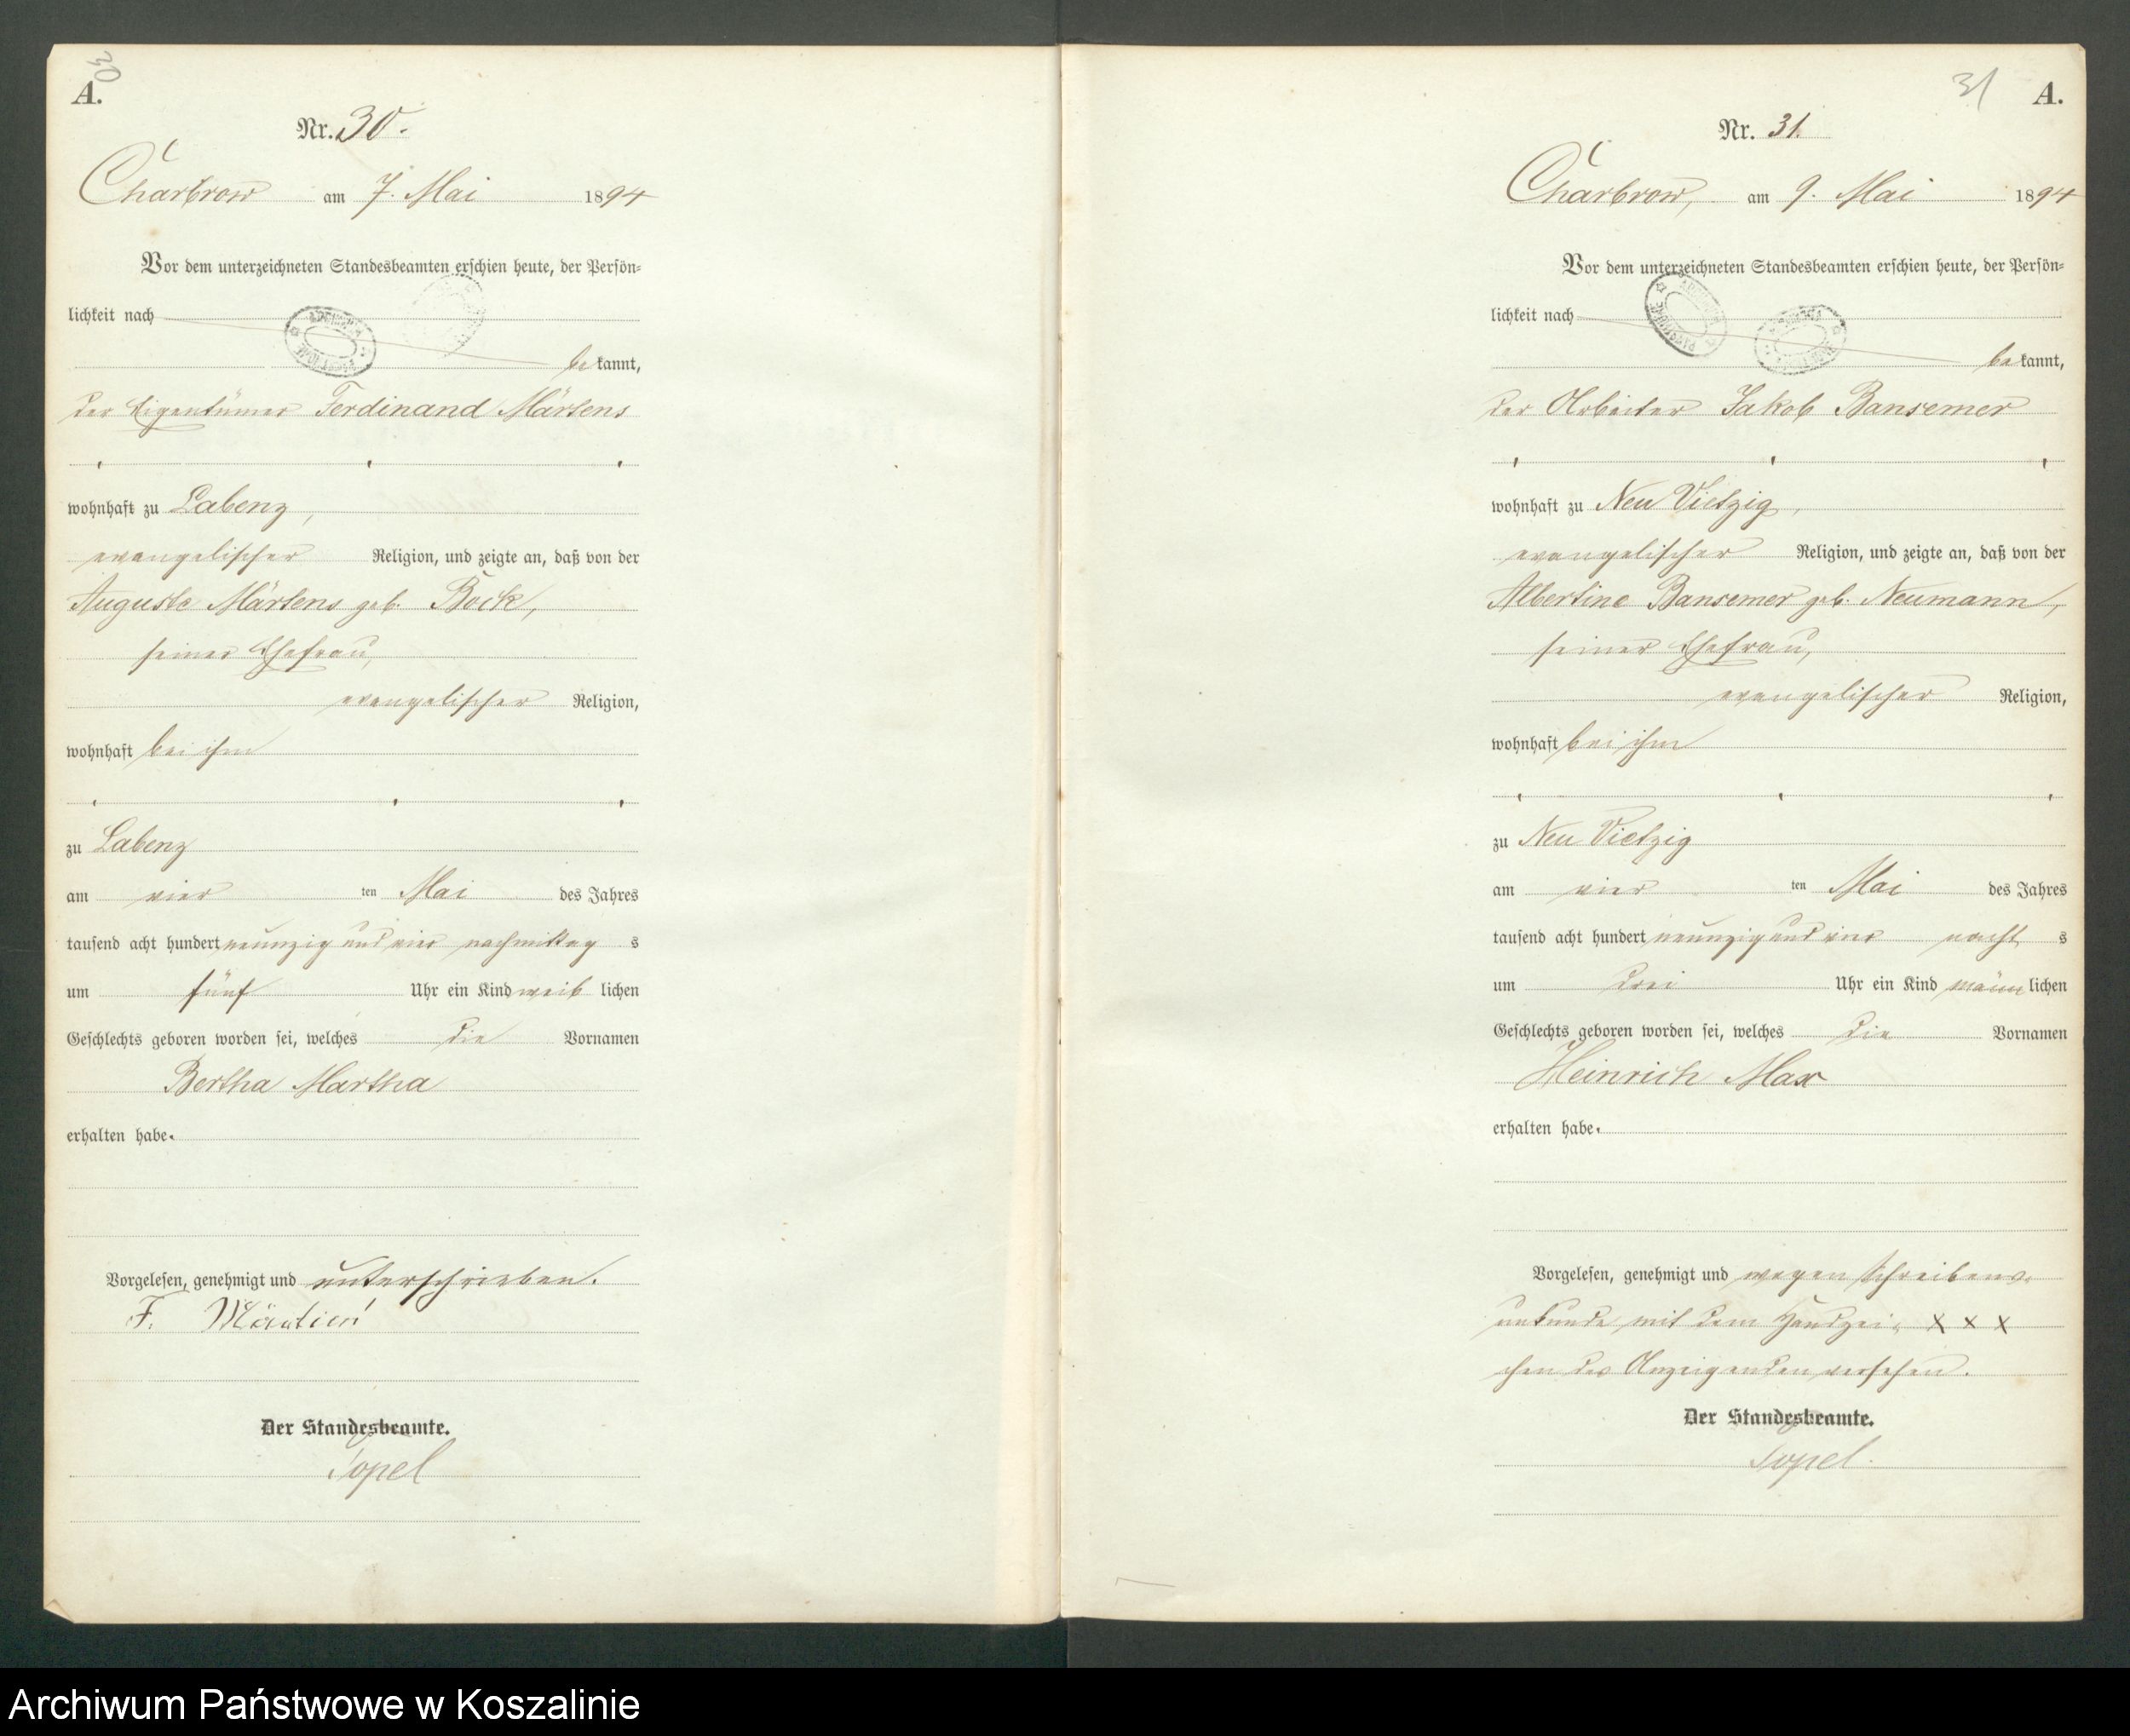 30
A.
Nr. 30.
Charbrow am 7. Mai 1894
Vor dem unterzeichneten Standesbeamten erschien heute, der Persön-
lichkeit nach
bekannt,
der Eigentümer Ferdinand Märtens
wohnhaft zu Labenz,
evangelischer Religion, und zeigte an, daß von der
Auguste Märtens geb. Bock,
seiner Ehefrau,
evangelischer Religion,
wohnhaft bei ihm
zu Labenz
am vier ten Mai des Jahres
tausend acht hundert neunzig und vier nachmittag s
um fünf Uhr ein Kind weib lichen
Geschlechts geboren worden sei, welches die Vornamen
Bertha Martha
erhalten habe.
Vorgelesen, genehmigt und unterschrieben.
F.
Der Standesbeamte.
Topel
31
A.
Nr. 31.
Charbrow, am 9. Mai 1894
Vor dem unterzeichneten Standesbeamten erschien heute, der Persön-
lichkeit nach
bekannt,
der Arbeiter Jakob Bansemer
wohnhaft zu Neu Vietzig,
evangelischer Religion, und zeigte an, daß von der
Albertine Bansemer geb. Neumann,
seiner Ehefrau,
evangelischer Religion,
wohnhaft bei ihm
zu Neu Vietzig
am vier ten Mai des Jahres
tausend acht hundert neunzig und vier nacht s
um drei Uhr ein Kind männ lichen
Geschlechts geboren worden sei, welches die Vornamen
Heinrich Max
erhalten habe.
Vorgelesen, genehmigt und wegen Schreibens-
unkunde mit dem Handzei- x x x
chen des Anzeigenden versehen.
Der Standesbeamte.
Topel.
Archiwum Państwowe w Koszalinie